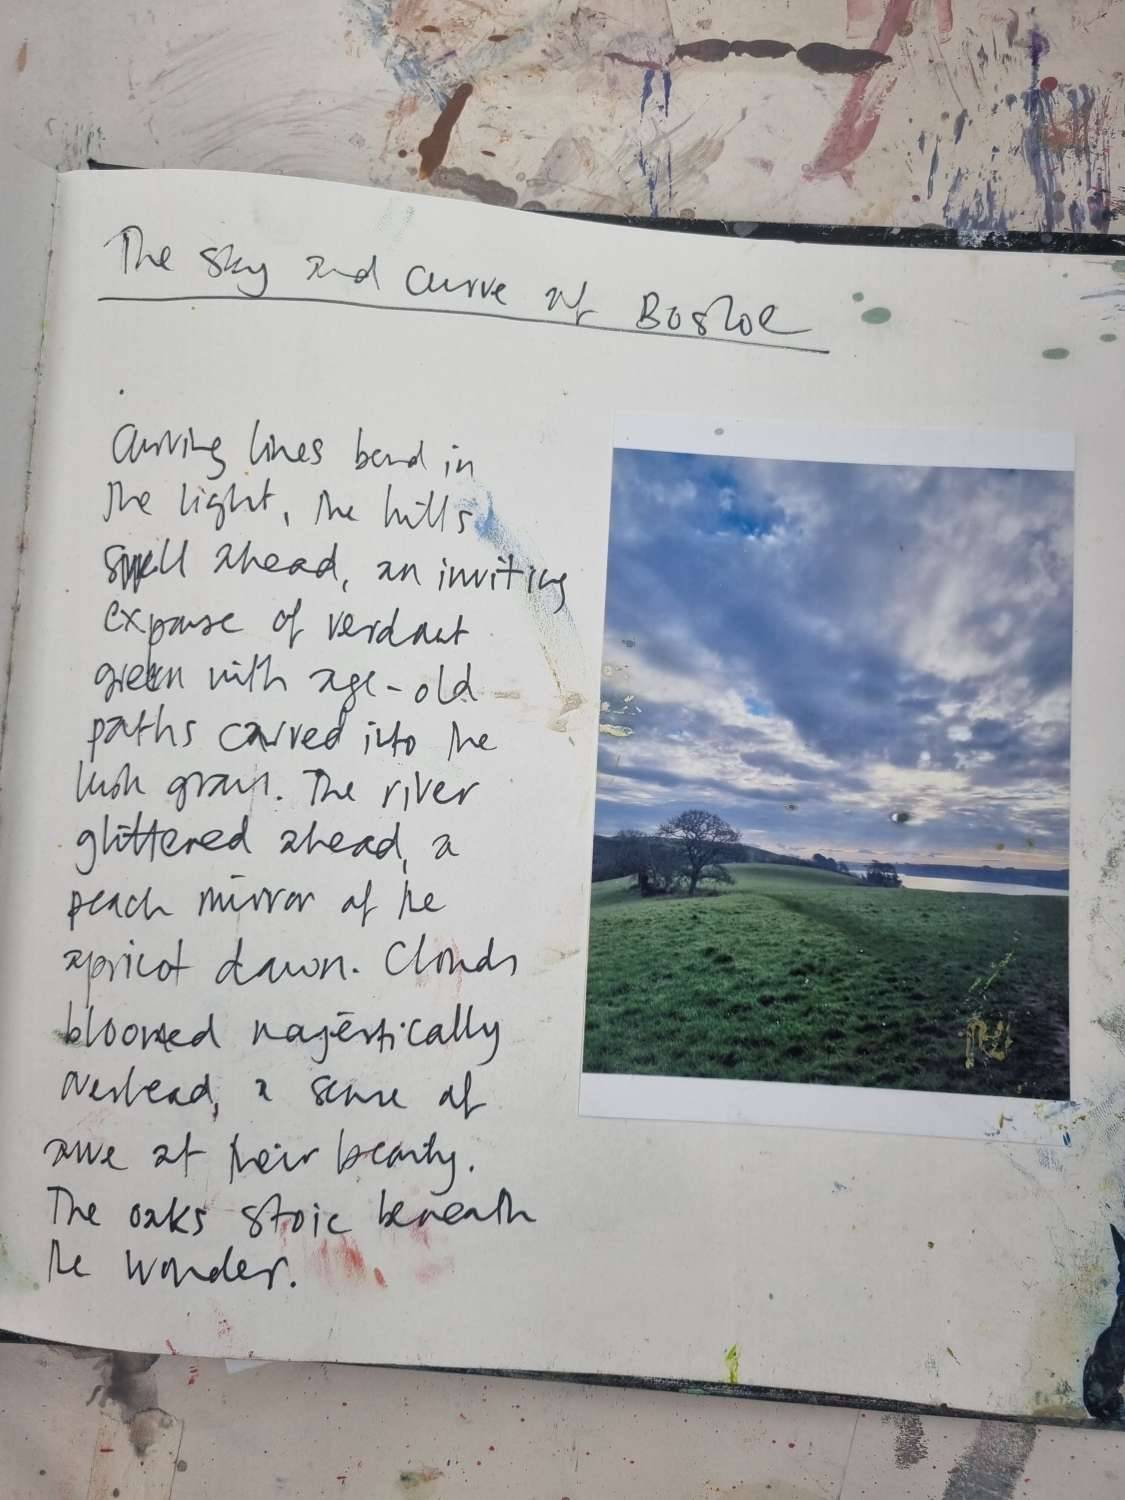 The sky and curve of Bosloe
Curving lines bend in
the light, the hills
swell ahead, an inviting
expanse of verdant
green with age-old
paths carved into the
lush grass. The river
glittered ahead, a
peach mirror of the
apricot dawn. Clouds
bloomed majestically
overhead, a sense of
awe at their beauty.
The oaks stoic beneath
the wonder.